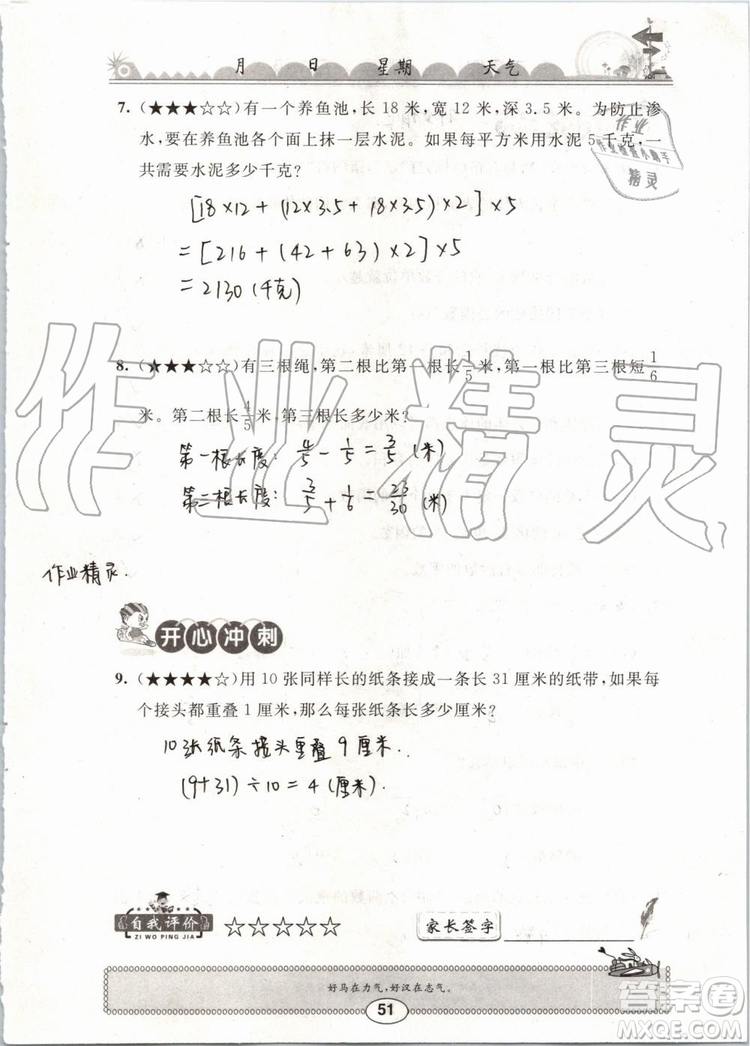 月 日 星期 天气
7. (★★★☆☆)有一个养鱼池,长 18 米,宽 12 米,深 3.5 米。为防止渗
水,要在养鱼池各个面上抹一层水泥。如果每平方米用水泥 5 千克,一
共需要水泥多少千克?
[18×12+(12×3.5+18×3.5)×2]×5
=[216+(42+63)×2]×5
=2130(千克)
8. (★★★☆☆)有三根绳,第二根比第一根长1/5米,第一根比第三根短1/6
米。第二根长4/5米,第三根长多少米?
第一根长度: 4/5-1/5=3/5(米)
第二根长度: 3/5+1/6=23/30(米)
作业精灵.
开心冲刺
9. (★★★★☆)用 10 张同样长的纸条接成一条长 31 厘米的纸带,如果每
个接头都重叠 1 厘米,那么每张纸条长多少厘米?
10张纸条接头重叠9厘米.
(9+31)÷10=4(厘米).
自我评价 ☆☆☆☆☆ 家长签字
ZI WO PING JIA
好马在力气,好汉在志气。
51
作业精灵
作业
精灵
答案圈
MXQE.COM